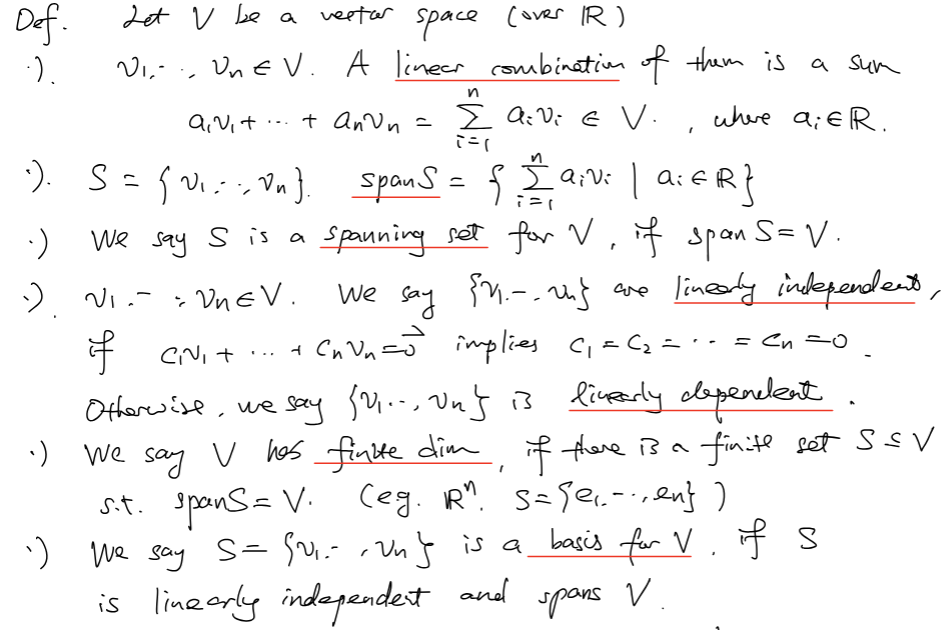 Def. Let V be a vector space (over ℝ)
·). v₁, ..., vₙ ∈ V. A linear combination of them is a sum
a₁v₁ + ··· + aₙvₙ = ∑ᵢ₌₁ⁿ aᵢvᵢ ∈ V. , where aᵢ ∈ ℝ.
·). S = {v₁, ..., vₙ}. span S = { ∑ᵢ₌₁ⁿ aᵢvᵢ | aᵢ ∈ ℝ }
·) We say S is a spanning set for V, if span S = V.
·). v₁, ..., vₙ ∈ V. We say {v₁, ..., vₙ} are linearly independent,
if c₁v₁ + ··· + cₙvₙ = 0⃗ implies c₁ = c₂ = ··· = cₙ = 0.
Otherwise, we say {v₁, ..., vₙ} is linearly dependent.
·) We say V has finite dim, if there is a finite set S ⊆ V
s.t. span S = V. (eg. ℝⁿ. S = {e₁, ..., eₙ})
·) We say S = {v₁, ..., vₙ} is a basis for V, if S
is linearly independent and spans V.